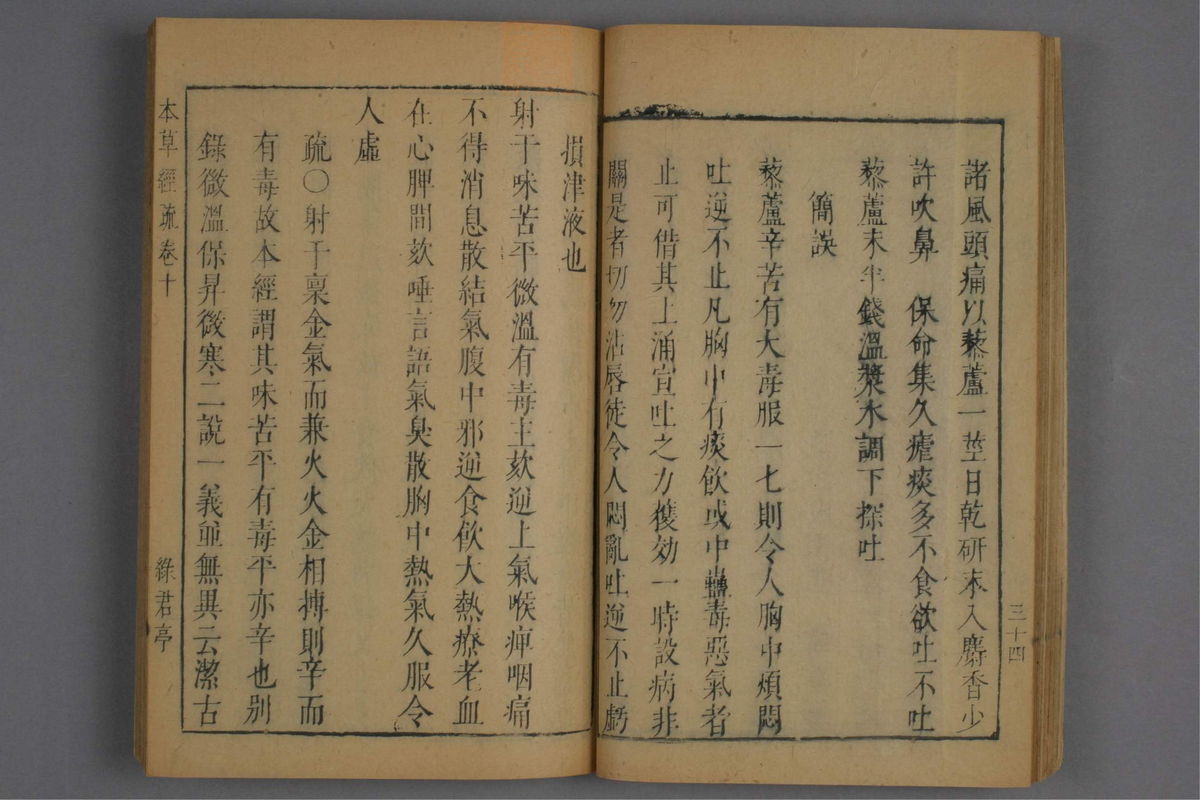 諸風頭痛以藜蘆一莖日乾研末入麝香少
許吹鼻　保命集久瘧痰多不食欲吐不吐
藜蘆末半錢溫漿水調下探吐
簡誤
藜蘆辛苦有大毒服一匕則令人胸中煩悶
吐逆不止凡胸中有痰飲或中蠱毒惡氣者
止可借其上涌宣吐之力獲効一時設病非
關是者切勿沾唇徒令人悶亂吐逆不止虧
三十四
損津液也
射干味苦平微溫有毒主欬逆上氣喉痺咽痛
不得消息散結氣腹中邪逆食飲大熱療老血
在心脾間欬唾言語氣臭散胸中熱氣久服令
人虛
疏〇射干稟金氣而兼火火金相搏則辛而
有毒故本經謂其味苦平有毒平亦辛也别
錄微溫保昇微寒二說一義並無異云潔古
本草經疏卷十
綠君亭